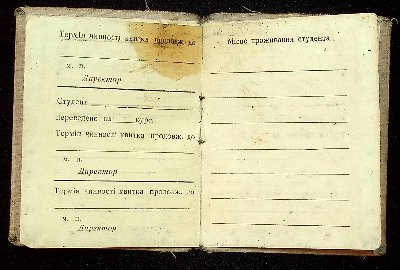 Термін чинності квитка продовж. до
м. п.
Директор
Студент
переведено на курс
Термін чинності квитка продовж. до
м. п.
Директор
Термін чинності квитка продовж. до
м. п.
Директор
Місце проживання студента